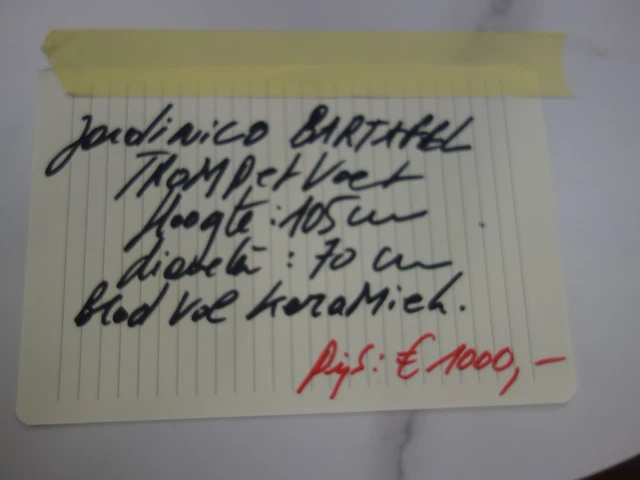 Jardinico BARTAFEL
TROMPETVOET
Hoogte : 105 cm
diameter : 70 cm
Blad Vol KeraMiek.
Prijs : € 1000,-